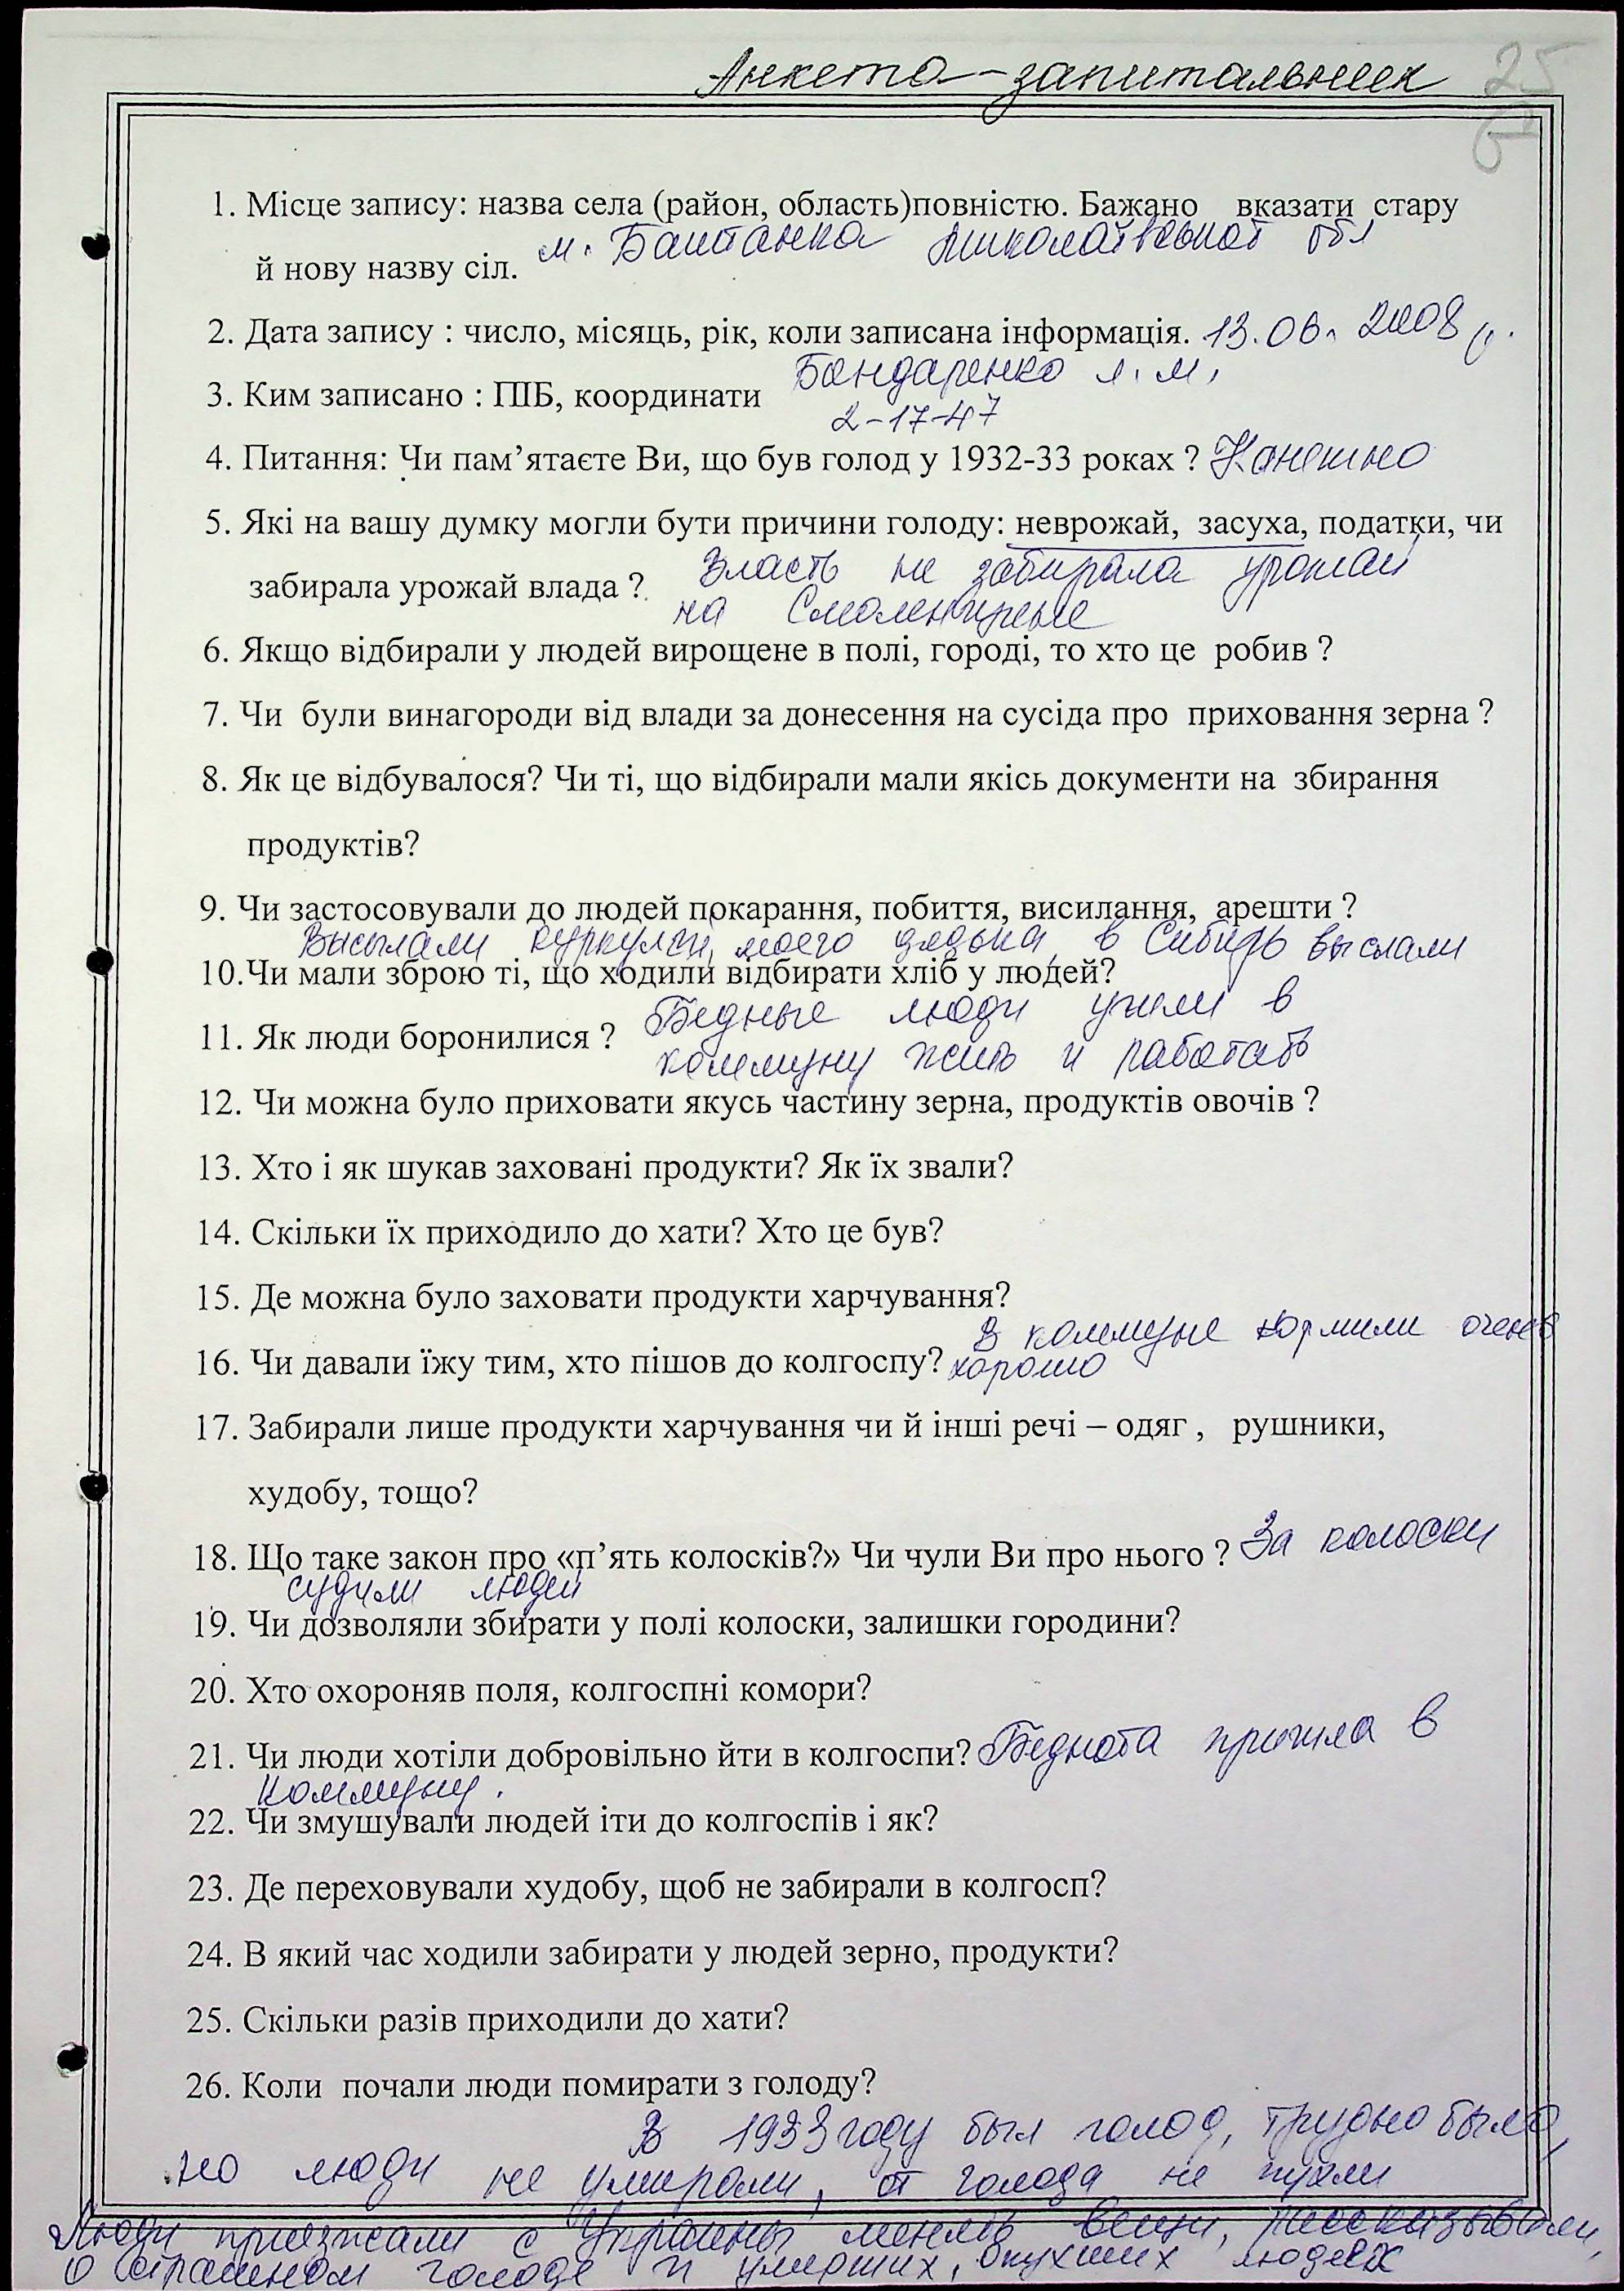 Анкета-запитальник
25
1. Місце запису: назва села (район, область)повністю. Бажано вказати стару
й нову назву сіл. м. Баштанка Миколаївської обл
2. Дата запису : число, місяць, рік, коли записана інформація. 13.06. 2008 р.
3. Ким записано : ПІБ, координати Бондаренко Л. М.
2-17-47
4. Питання: Чи пам’ятаєте Ви, що був голод у 1932-33 роках ? Канешно
5. Які на вашу думку могли бути причини голоду: неврожай, засуха, податки, чи
забирала урожай влада ? Власть не забирала урожай
на Смоленщине
6. Якщо відбирали у людей вирощене в полі, городі, то хто це робив ?
7. Чи були винагороди від влади за донесення на сусіда про приховання зерна ?
8. Як це відбувалося? Чи ті, що відбирали мали якісь документи на збирання
продуктів?
9. Чи застосовували до людей покарання, побиття, висилання, арешти ?
Высылали куркулей, моего дядька в Сибирь выслали
10.Чи мали зброю ті, що ходили відбирати хліб у людей?
11. Як люди боронилися ? Бедные люди ушли в
коммуну жить и работать
12. Чи можна було приховати якусь частину зерна, продуктів овочів ?
13. Хто і як шукав заховані продукти? Як їх звали?
14. Скільки їх приходило до хати? Хто це був?
15. Де можна було заховати продукти харчування?
В коммуне кормили очень
16. Чи давали їжу тим, хто пішов до колгоспу? хорошо
17. Забирали лише продукти харчування чи й інші речі – одяг , рушники,
худобу, тощо?
18. Що таке закон про «п’ять колосків?» Чи чули Ви про нього ? За колоски
судили людей
19. Чи дозволяли збирати у полі колоски, залишки городини?
20. Хто охороняв поля, колгоспні комори?
21. Чи люди хотіли добровільно йти в колгоспи? Беднота пришла в
коммуну.
22. Чи змушували людей іти до колгоспів і як?
23. Де переховували худобу, щоб не забирали в колгосп?
24. В який час ходили забирати у людей зерно, продукти?
25. Скільки разів приходили до хати?
26. Коли почали люди помирати з голоду?
В 1933 году был голод, трудно было,
но люди не умирали, от голода не пухли
Люди приезжали с Украины меняли вещи, рассказывали,
о страшном голоде и умерших, опухших людях